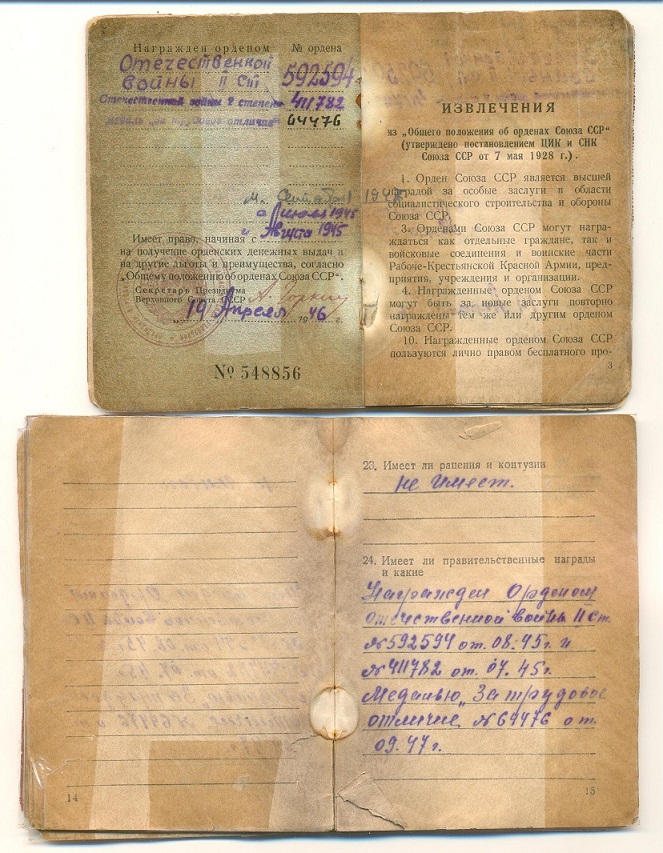 Награжден орденом № ордена
Отечественной
войны II ст 592594
Отечественной войны 2 степени 411782
медаль „за трудовое отличие" 64476
1948
с Июля 1945
и Августа 1945
Имеет право, начиная с
на получение орденских денежных выдач и
на другие льготы и преимущества, согласно
„Общему положению об орденах Союза ССР".
Секретарь Президиума
Верховного Совета СССР А. Горкин
„19 Апреля 1946 г.
№ 548856
ИЗВЛЕЧЕНИЯ
из „Общего положения об орденах Союза ССР"
(утверждено постановлением ЦИК и СНК
Союза ССР от 7 мая 1928 г.).
1. Орден Союза ССР является высшей
наградой за особые заслуги в области
социалистического строительства и обороны
Союза ССР.
3. Орденами Союза ССР могут награ-
ждаться как отдельные граждане, так и
войсковые соединения и воинские части
Рабоче-Крестьянской Красной Армии, пред-
приятия, учреждения и организации.
4. Награжденные орденом Союза ССР
могут быть за новые заслуги повторно
награждены тем же или другим орденом
Союза ССР.
10. Награжденные орденом Союза ССР
пользуются лично правом бесплатного про-
3
14
23. Имеет ли ранения и контузии
не имеет.
24. Имеет ли правительственные награды
и какие
Награжден Орденом
отечественной войны II ст.
№592594 от. 08.45г. и
№411782 от. 07.45г.
Медалью „За трудовое
отличие„ №64476 от.
09.47г.
15